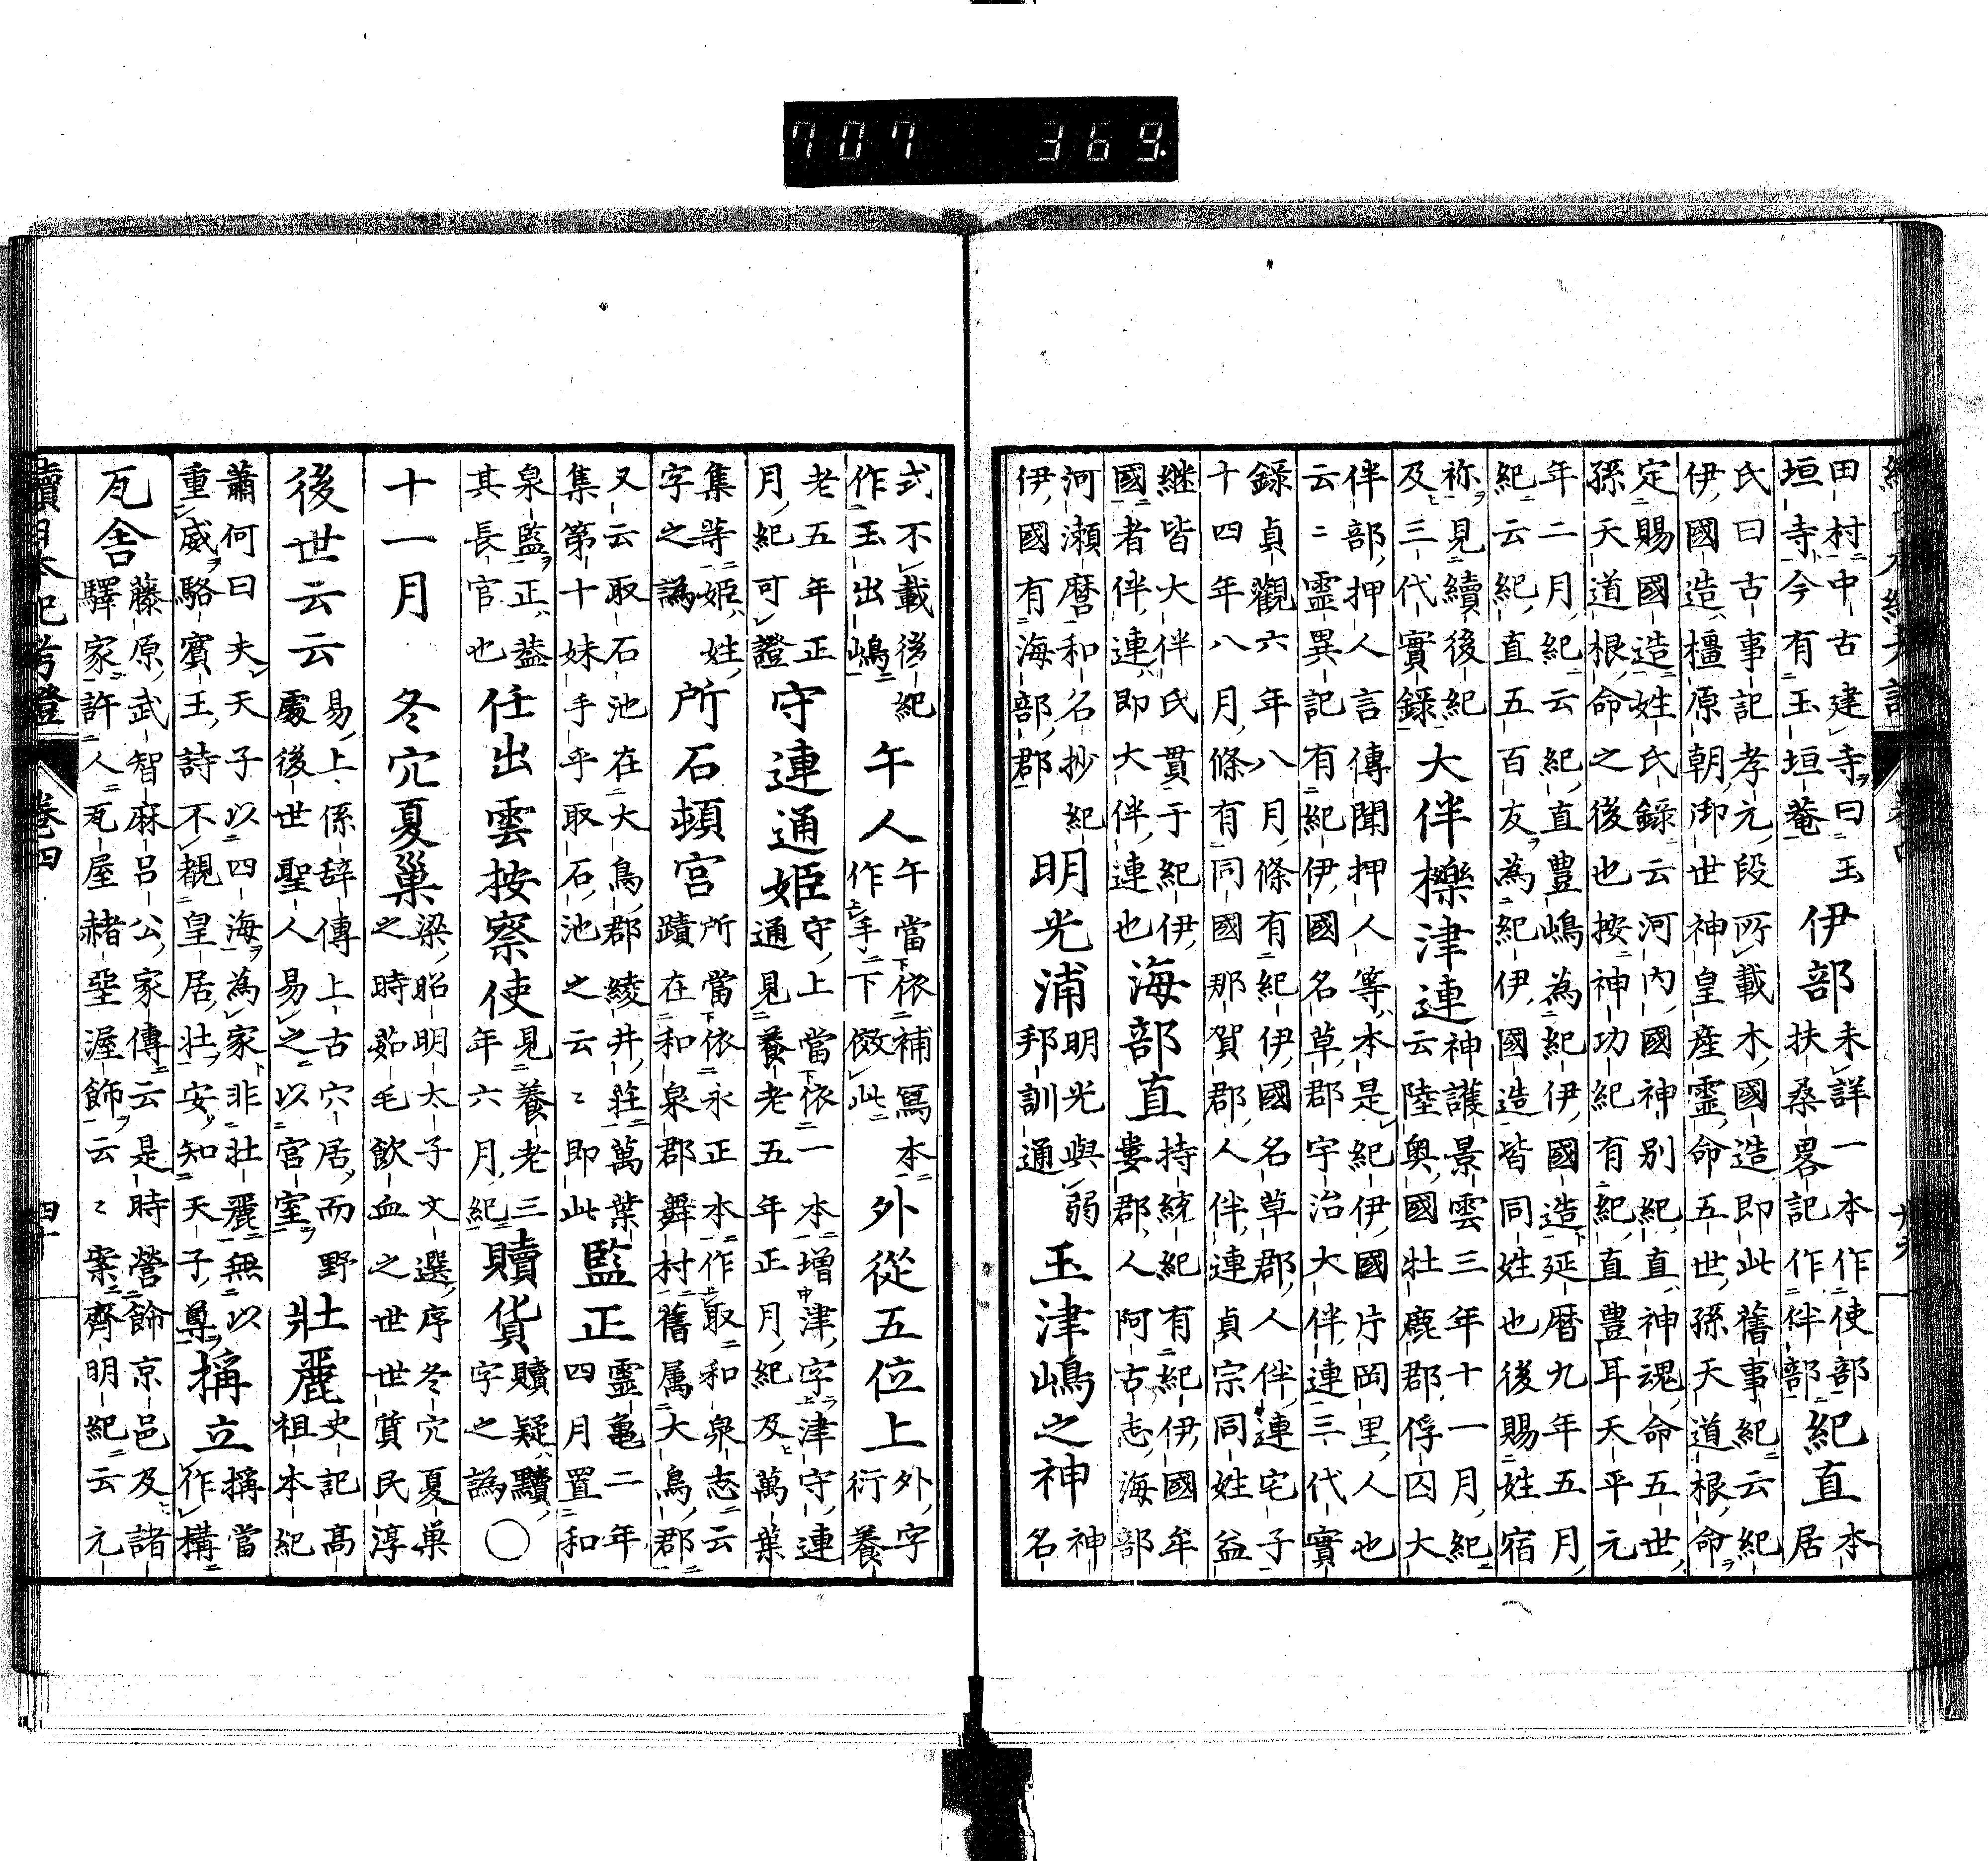 707 369.
田村中古建寺曰玉
垣寺今有玉垣菴
伊部
未詳一本作使部
扶桑畧記作伴部
紀直
本居
氏曰古事記孝元段所載木國造即此舊事紀云紀
伊國造橿原朝御世神皇産靈命五世孫天道根命
定賜國造姓氏錄云河内國神別紀直神魂命五世
孫天道根命之後也按神功紀有紀直豊耳天平元
年二月紀云紀直豊嶋為紀伊國造延暦九年五月
紀云紀直五百友為紀伊國造皆同姓也後賜姓宿
祢見續後紀
及三代實錄
大伴櫟津連
神護景雲三年十一月紀
云陸奥國牡鹿郡俘囚大
伴部押人言傳聞押人等本是紀伊國片岡里人也
云〻靈異記有紀伊國名草郡宇治大伴連三代實
錄貞觀六年八月條有紀伊國名草郡人伴連宅子
十四年八月條有同國那賀郡人伴連貞宗同姓益
継皆大伴氏貫于紀伊
國者伴連即大伴連也
海部直
持統紀有紀伊國牟
婁郡人阿古志海部
河瀬麿和名抄紀
伊國有海部郡
明光浦
明光與弱
邦訓通
玉津嶋之神
神
名
式不載後紀
作玉出嶋
午人
午當依補寫本
作手下傚此
外從五位上
外字
衍養
老五年正
月紀可證
守連通姫
守上當依一本増津字津守連
通見養老五年正月紀及萬葉
集等姫姓
字之譌
所石頓宮
所當依永正本作取和泉志云
蹟在和泉郡舞村舊属大鳥郡
又云取石池在大鳥郡綾井荘萬葉
集第十妹手乎取石池之云〻即此
監正
靈亀二年
四月置和
泉監正蓋
其長官也
任出雲按察使
見養老三
年六月紀
贖貨
贖疑黷
字之譌
○
十一月　冬穴夏巢
梁昭明太子文選序冬穴夏巢
之時茹毛飲血之世世質民淳
後世云云
易上係辞傳上古穴居而野
處後世聖人易之以宮室
壯麗
史記髙
祖本紀
蕭何曰夫天子以四海為家非壮麗無以
重威駱賓王詩不覩皇居壮安知天子尊
稱立
稱當
作構
瓦舎
藤原武智麻呂公家傳云是時營餝京邑及諸
驛家許人瓦屋赭堊渥飾云〻案齊明紀云元
續日本紀考證
卷四
四十